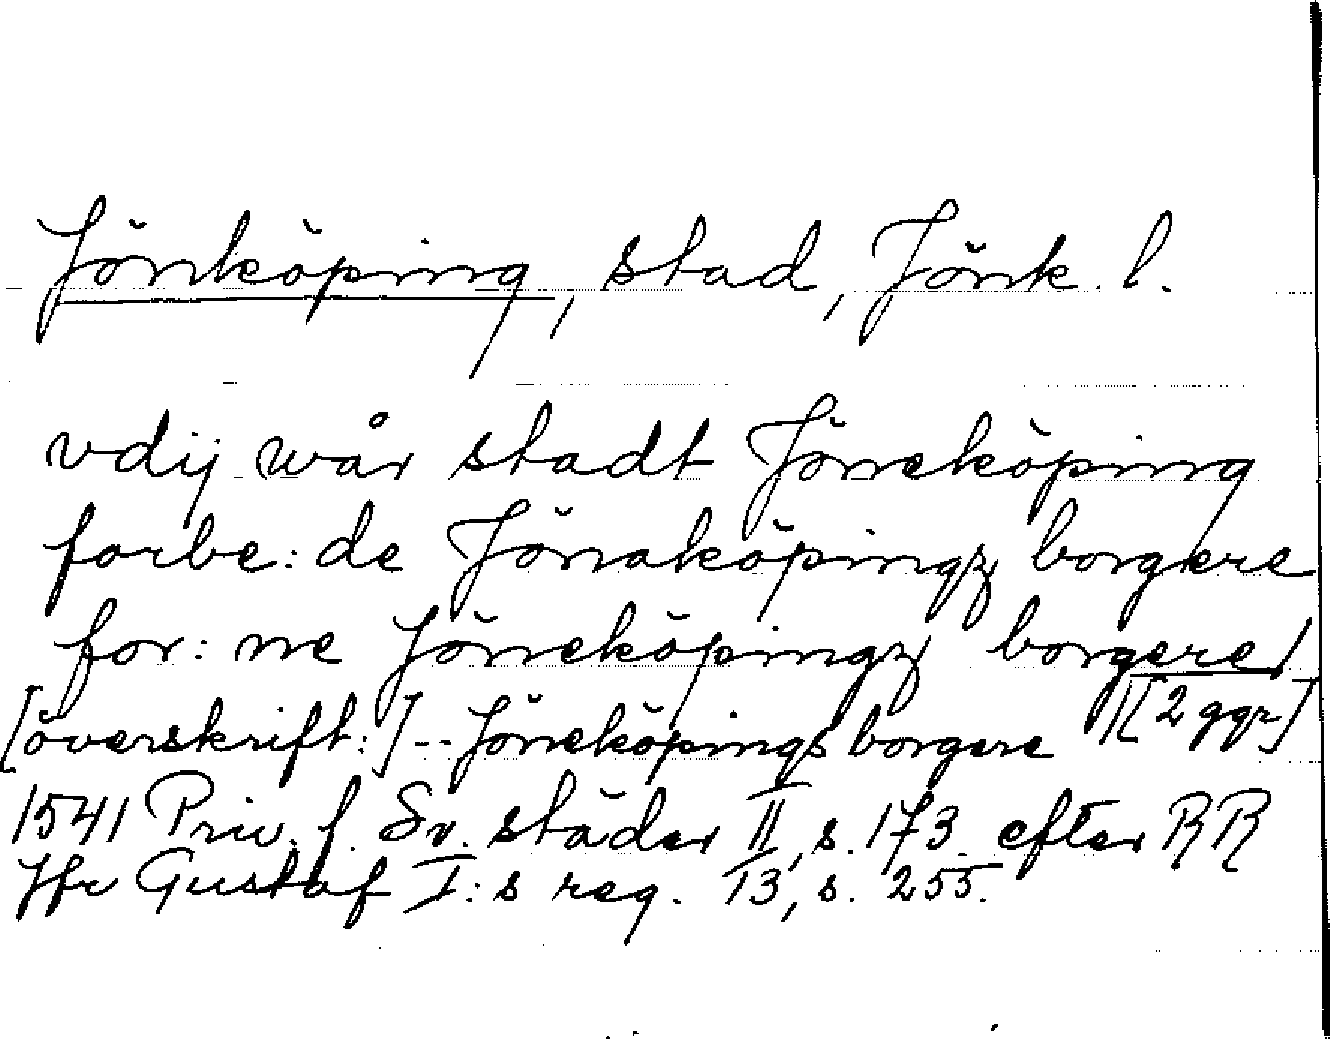 Jönköping, stad, Jönk. l.
vdij wår stadt Jöneköping
forbe: de Jönaköpingz borgere
for: ne Jöneköpingz borgere/
[överskrift:] -- Jöneköpings borgere /[2 ggr]
1541 Priv. f. Sv. städer II, s. 173. efter RR
Jfr Gustaf I:s reg. 13, s. 255.